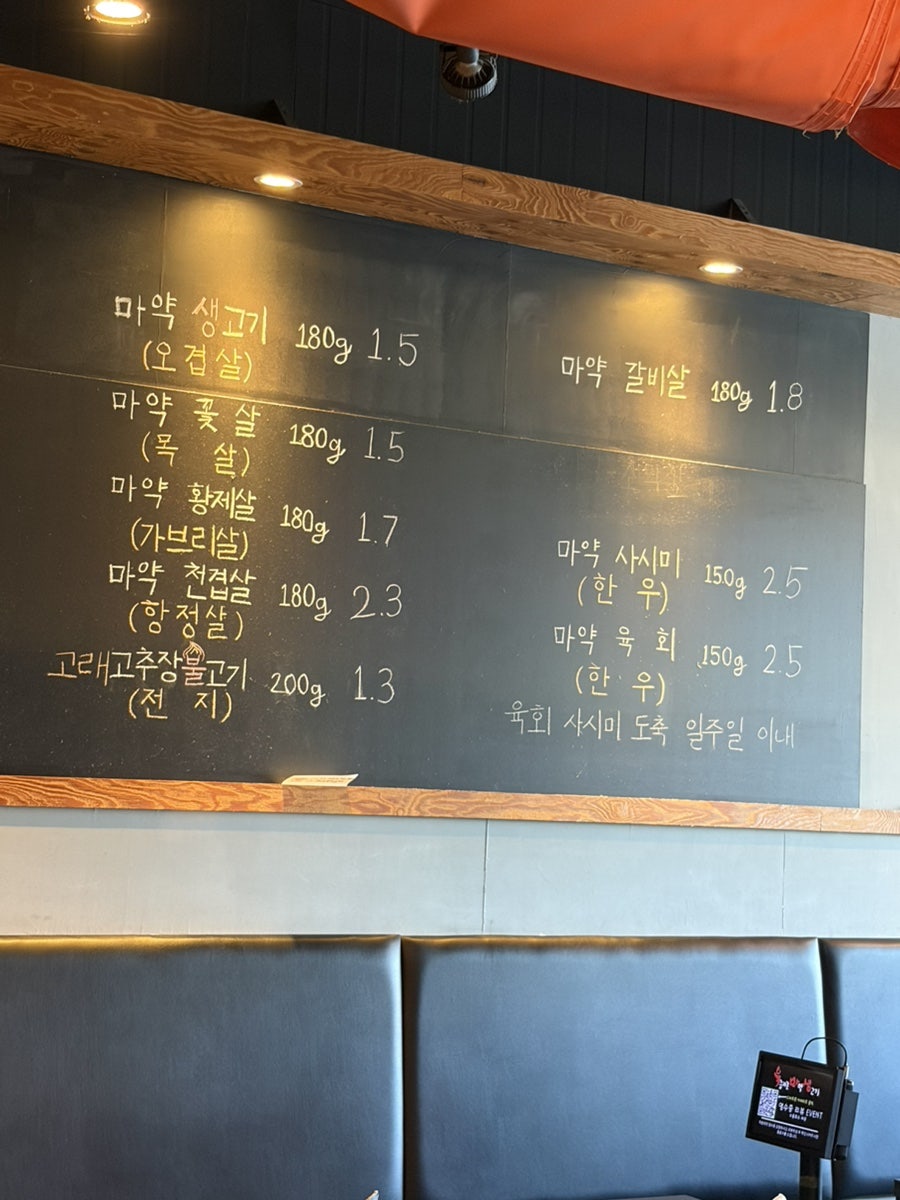 마약 생고기 180g 1.5
(오겹살)
마약 꽃살 180g 1.5
(목 살)
마약 황제살 180g 1.7
(가브리살)
마약 천겹살 180g 2.3
(항정살)
고래고추장불고기 200g 1.3
(전 지)
마약 갈비살 180g 1.8
마약 사시미 150g 2.5
(한 우)
마약 육 회 150g 2.5
(한 우)
육회 사시미 도축 일주일 이내
영수증 리뷰 EVENT